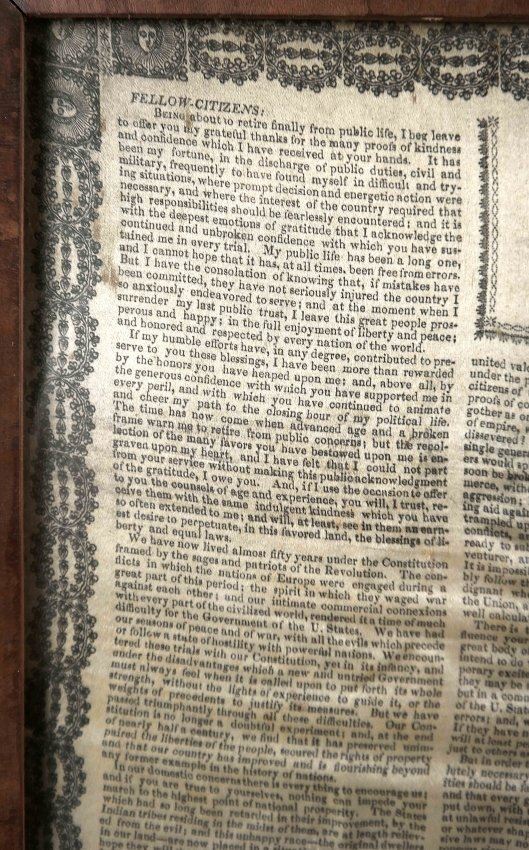 FELLOW-CITIZENS:
BEING about to retire finally from public life, I beg leave
to offer you my grateful thanks for the many proofs of kindness
and confidence which I have received at your hands. It has
been my fortune, in the discharge of public duties, civil and
military, frequently to have found myself in difficult and try-
ing situations, where prompt decision and energetic action were
necessary, and where the interest of the country required that
high responsibilities should be fearlessly encountered; and it is
with the deepest emotions of gratitude that I acknowledge the
continued and unbroken confidence with which you have sus-
tained me in every trial. My public life has been a long one,
and I cannot hope that it has, at all times, been free from errors.
But I have the consolation of knowing that, if mistakes have
been committed, they have not seriously injured the country I
so anxiously endeavored to serve; and at the moment when I
surrender my last public trust, I leave this great people pros-
perous and happy; in the full enjoyment of liberty and peace;
and honored and respected by every nation of the world.
If my humble efforts have, in any degree, contributed to pre-
serve to you these blessings, I have been more than rewarded
by the honors you have heaped upon me; and, above all, by
the generous confidence with which you have supported me in
every peril, and with which you have continued to animate
and cheer my path to the closing hour of my political life.
The time has now come when advanced age and a broken
frame warn me to retire from public concerns; but the recol-
lection of the many favors you have bestowed upon me is en-
graven upon my heart, and I have felt that I could not part
from your service without making this public acknowledgment
of the gratitude, I owe you. And, if I use the occasion to offer
to you the counsels of age and experience, you will, I trust, re-
ceive them with the same indulgent kindness which you have
so often extended to me; and will, at least, see in them an earn-
est desire to perpetuate, in this favored land, the blessings of li-
berty and equal laws.
We have now lived almost fifty years under the Constitution
framed by the sages and patriots of the Revolution. The con-
flicts in which the nations of Europe were engaged during a
great part of this period; the spirit in which they waged war
against each other; and our intimate commercial connexions
with every part of the civilized world, rendered it a time of much
difficulty for the Government of the U. States. We have had
our seasons of peace and of war, with all the evils which precede
or follow a state of hostility with powerful nations. We encoun-
tered these trials with our Constitution, yet in its infancy, and
under the disadvantages which a new and untried Government
must always feel when it is called upon to put forth its whole
strength, without the lights of experience to guide it, or the
weights of precedents to justify its measures. But we have
passed triumphantly through all these difficulties. Our Con-
stitution is no longer a doubtful experiment; and, at the end
of nearly half a century, we find that it has preserved unim-
paired the liberties of the people, secured the rights of property
and that our country has improved and is flourishing beyond
any former example in the history of nations.
In our domestic concerns there is every thing to encourage us;
and if you are true to yourselves, nothing can impede your
march to the highest point of national prosperity. The States
which had so long been retarded in their improvement, by the
Indian tribes residing in the midst of them, are at length reliev-
ed from the evil; and this unhappy race—the original dwellers
in our land—are now placed in a
united
under the
citizens of
proofs of
gother as
of empire,
dissevered
single gene
ers would
soon be
merce, with
aggression
ing aid again
trampled
conflicts,
ready to
venturer, an
It is impossi
bly follow
dignant
the Union,
well calcula
There is
fluence you
great body
intend to do
porary excite
they may be
but in a
of the U. Stat
errors; and,
if they have
will at least
just to others
But in order
lutely necessar
ities should be
and that every
put down, with
at unlawful
or whatever
sive laws may